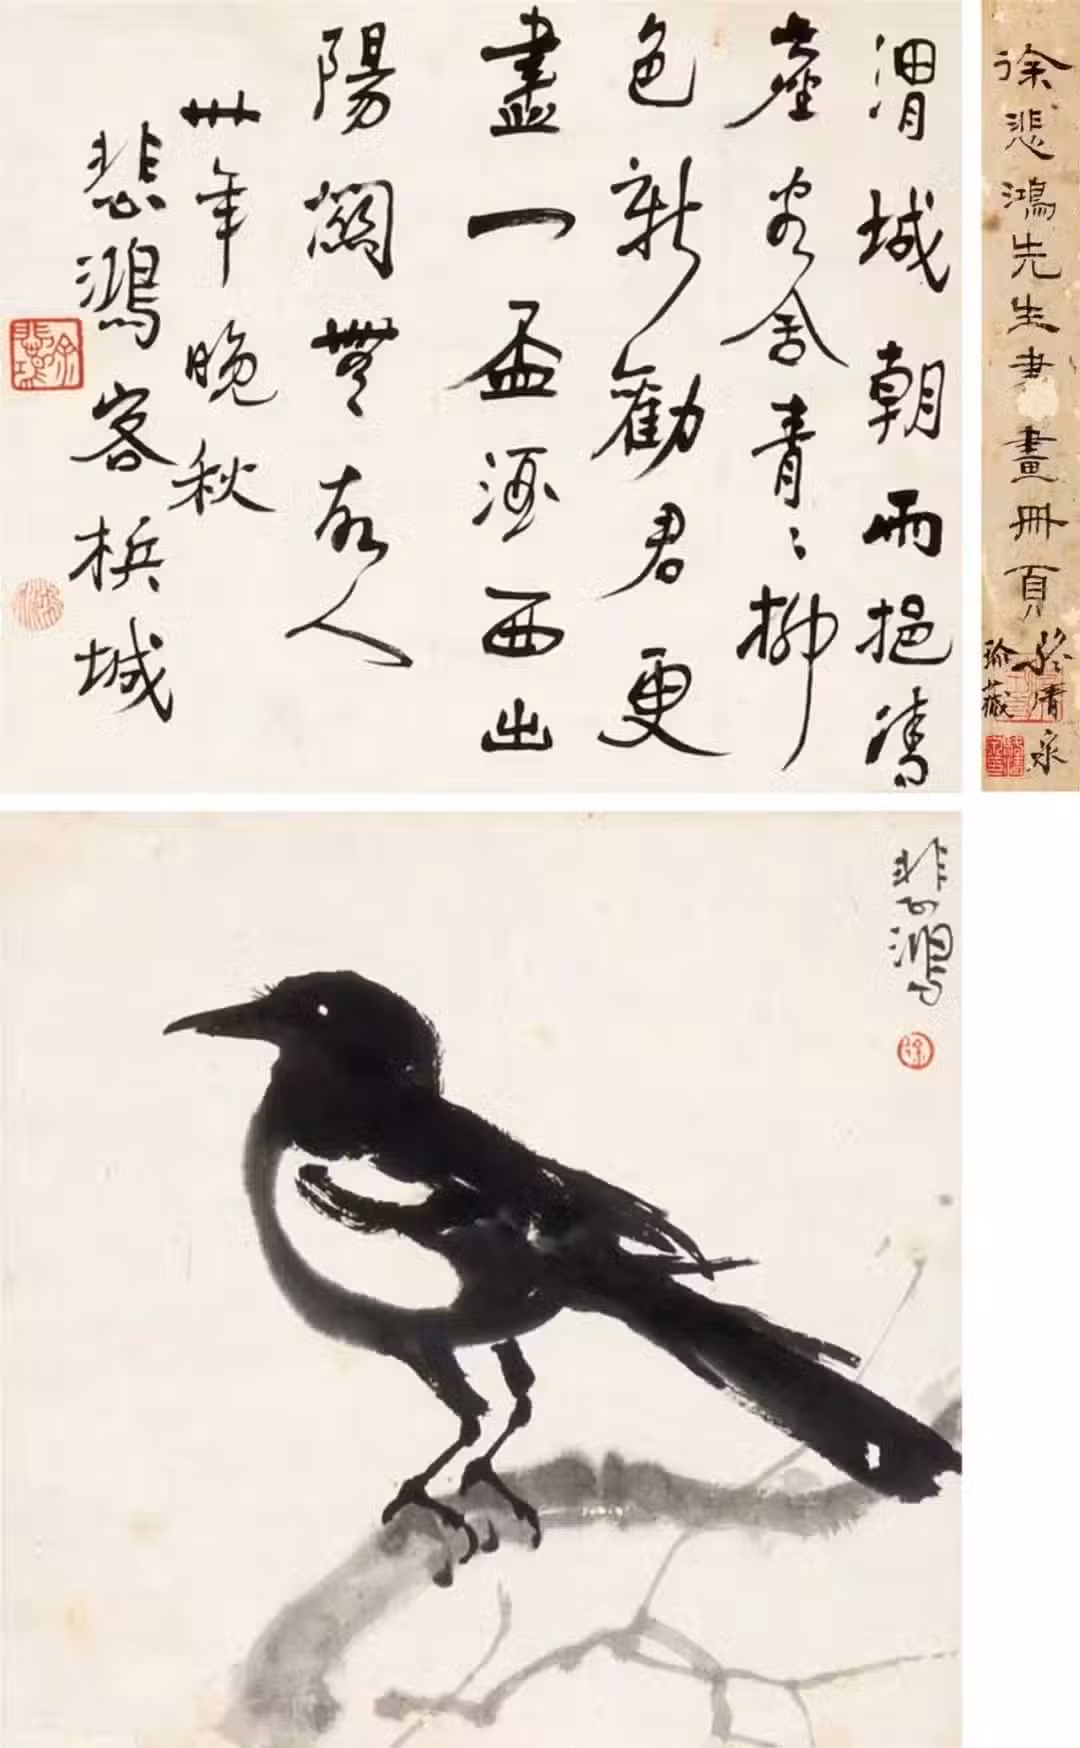 徐悲鴻先生書畫冊頁
駱清泉
珍藏
渭城朝雨挹清
塵客舍青〻柳
色新勸君更
盡一盃酒西出
陽關無故人
卅年晚秋
悲鴻客梹城
悲鴻
徐